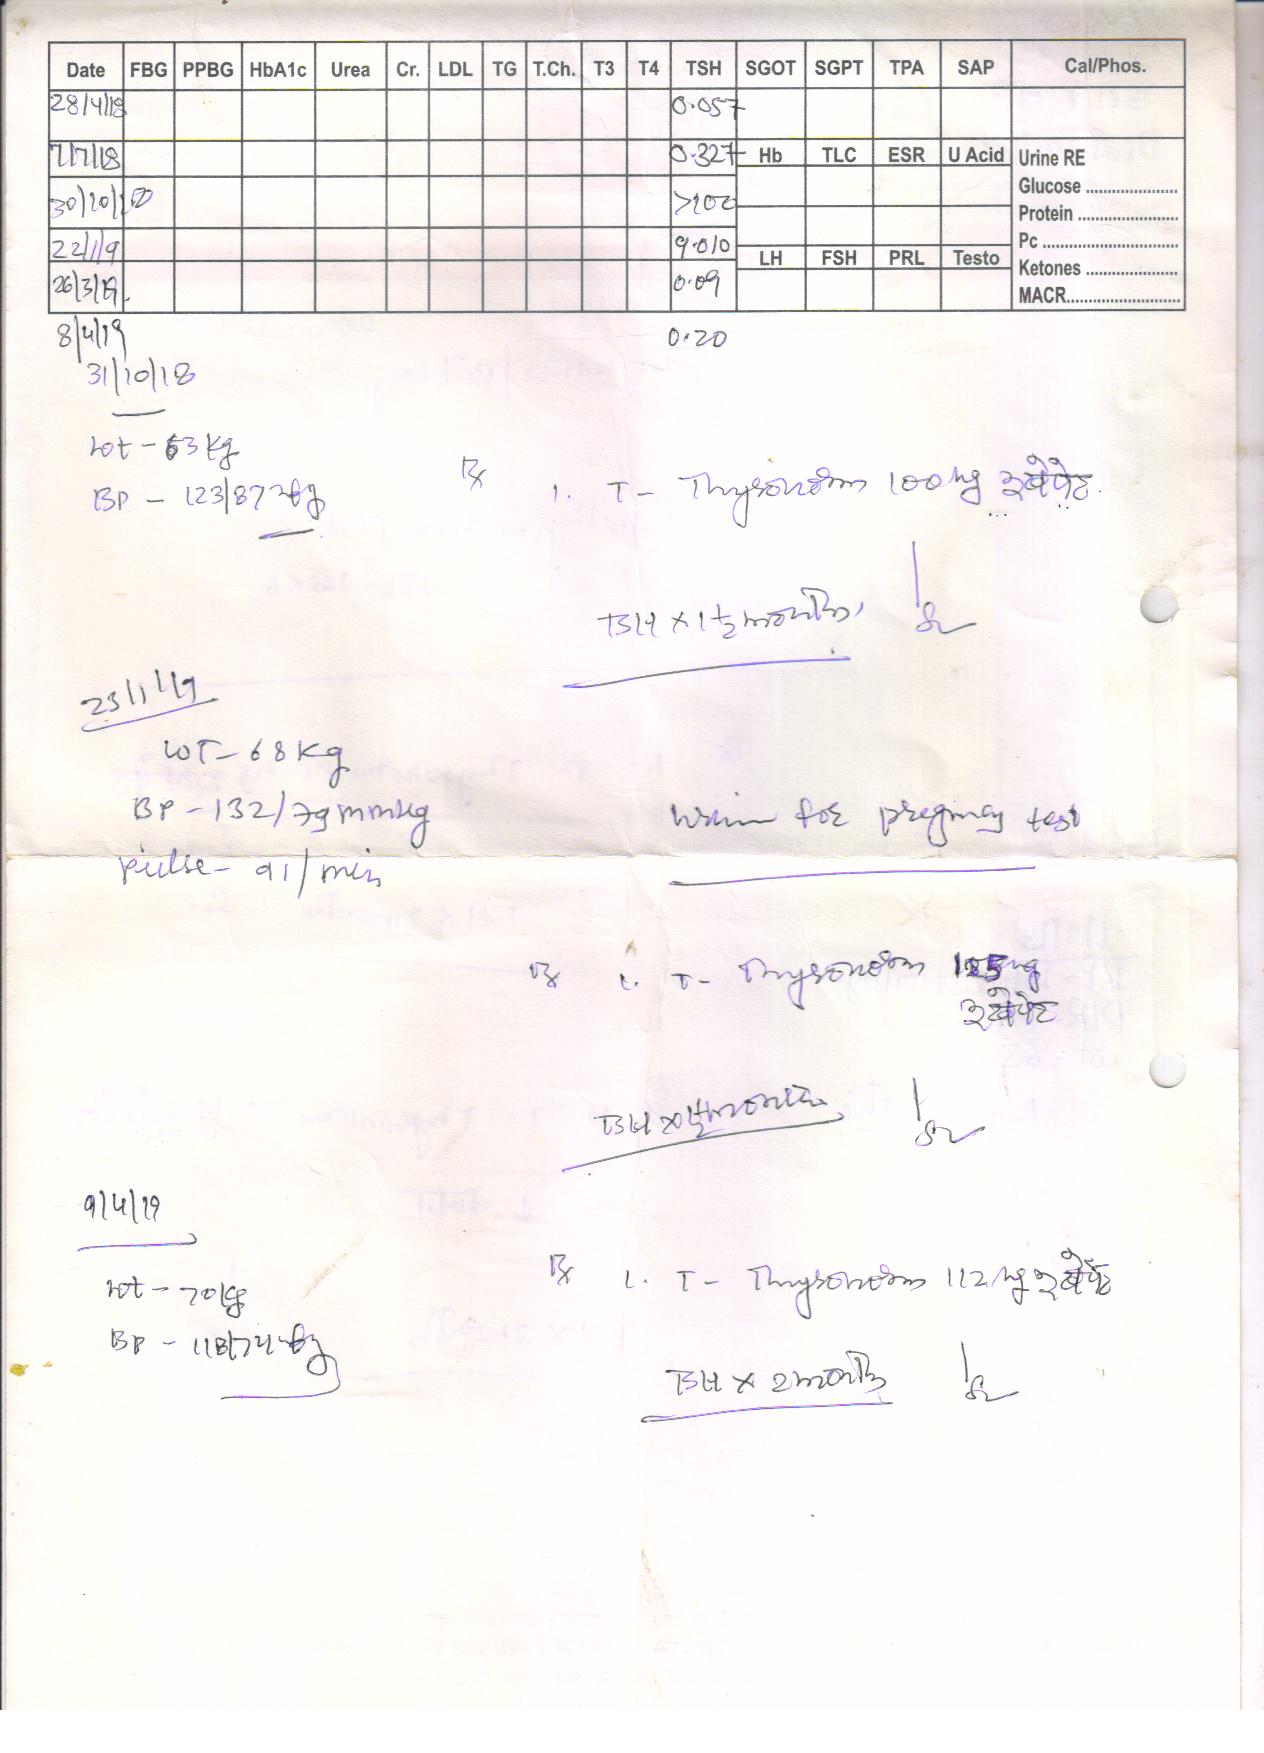 Date FBG PPBG HbA1c Urea Cr. LDL TG T.Ch. T3 T4 TSH SGOT SGPT TPA SAP Cal/Phos.
28/4/18 0.057
7/7/18 0.327 Hb TLC ESR U Acid Urine RE
Glucose ......................
30/10/18 >100 Protein ........................
22/1/19 9.010 Pc ................................
LH FSH PRL Testo Ketones ....................
26/3/19 0.09 MACR...........................
8/4/19 0.20
31/10/18
wt - 63 kg
BP - 123/87
Rx 1. T- Thyronorm 100 mg
x 1 1/2 months
23/1/19
WT - 68 Kg
BP - 132/79 mmHg
for pregnacy test
pulse - 91/min
Rx 1. T- Thyronorm 125 mg
9/4/19
wt - 70 kg
Rx 1. T- Thyronorm 112 mg
BP - 118/74
x 2 months